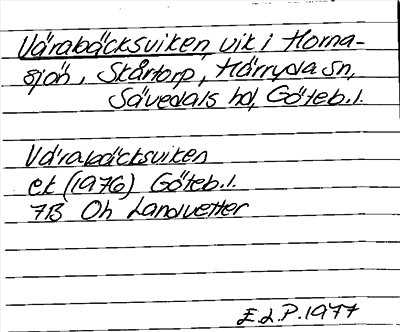 Värabäcksviken, vik i Horna-
sjön, Skårtorp, Härryda sn,
Sävedals hd, Göteb. l.
Värabäcksviken
ek (1976) Göteb. l.
7B Oh Landvetter
E.L.P. 1977